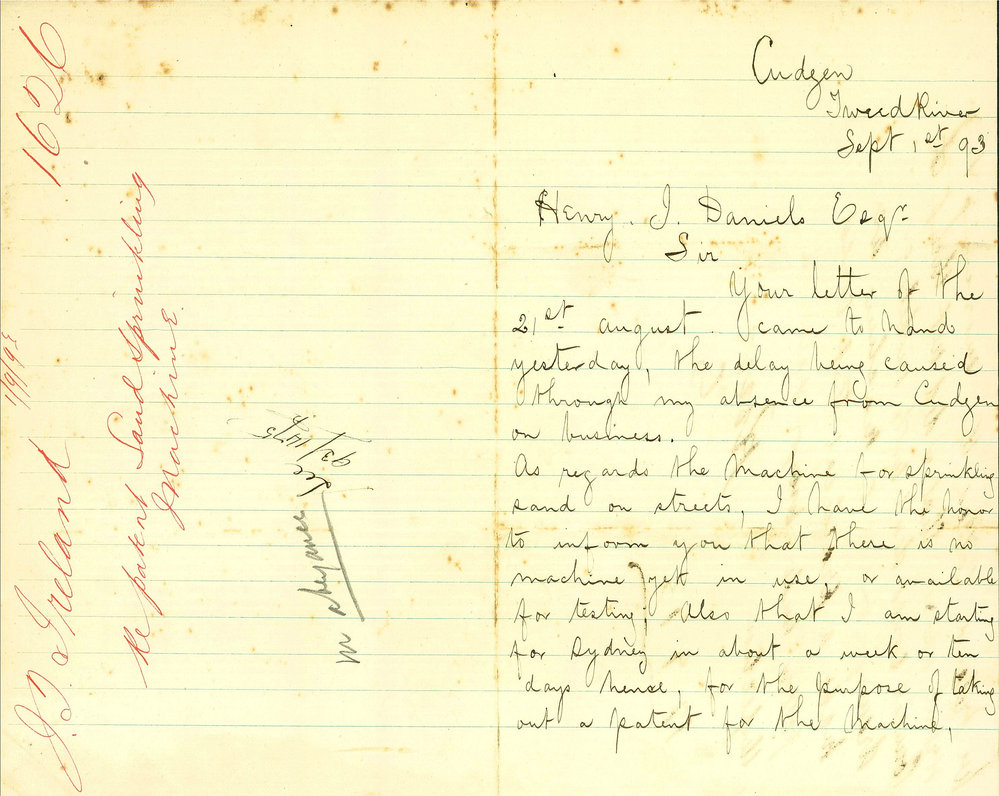 1626
J. J. Ireland 1/9/93
Re patent Sand Sprinkling
Machine
In abeyance
See
93/1475
Cudgen
Tweed River
Sept 1st 93
Henry. J. Daniels Esqr
Sir
Your letter of the
21st august. came to hand
yesterday, the delay being caused
through my absence from Cudgen
on business.
As regards the Machine for sprinkling
sand on streets, I have the honor
to inform you that there is no
machine yet in use, or available
for testing; Also that I am starting
for Sydney in about a week or ten
days hence, for the purpose of taking
out a patent for the Machine,